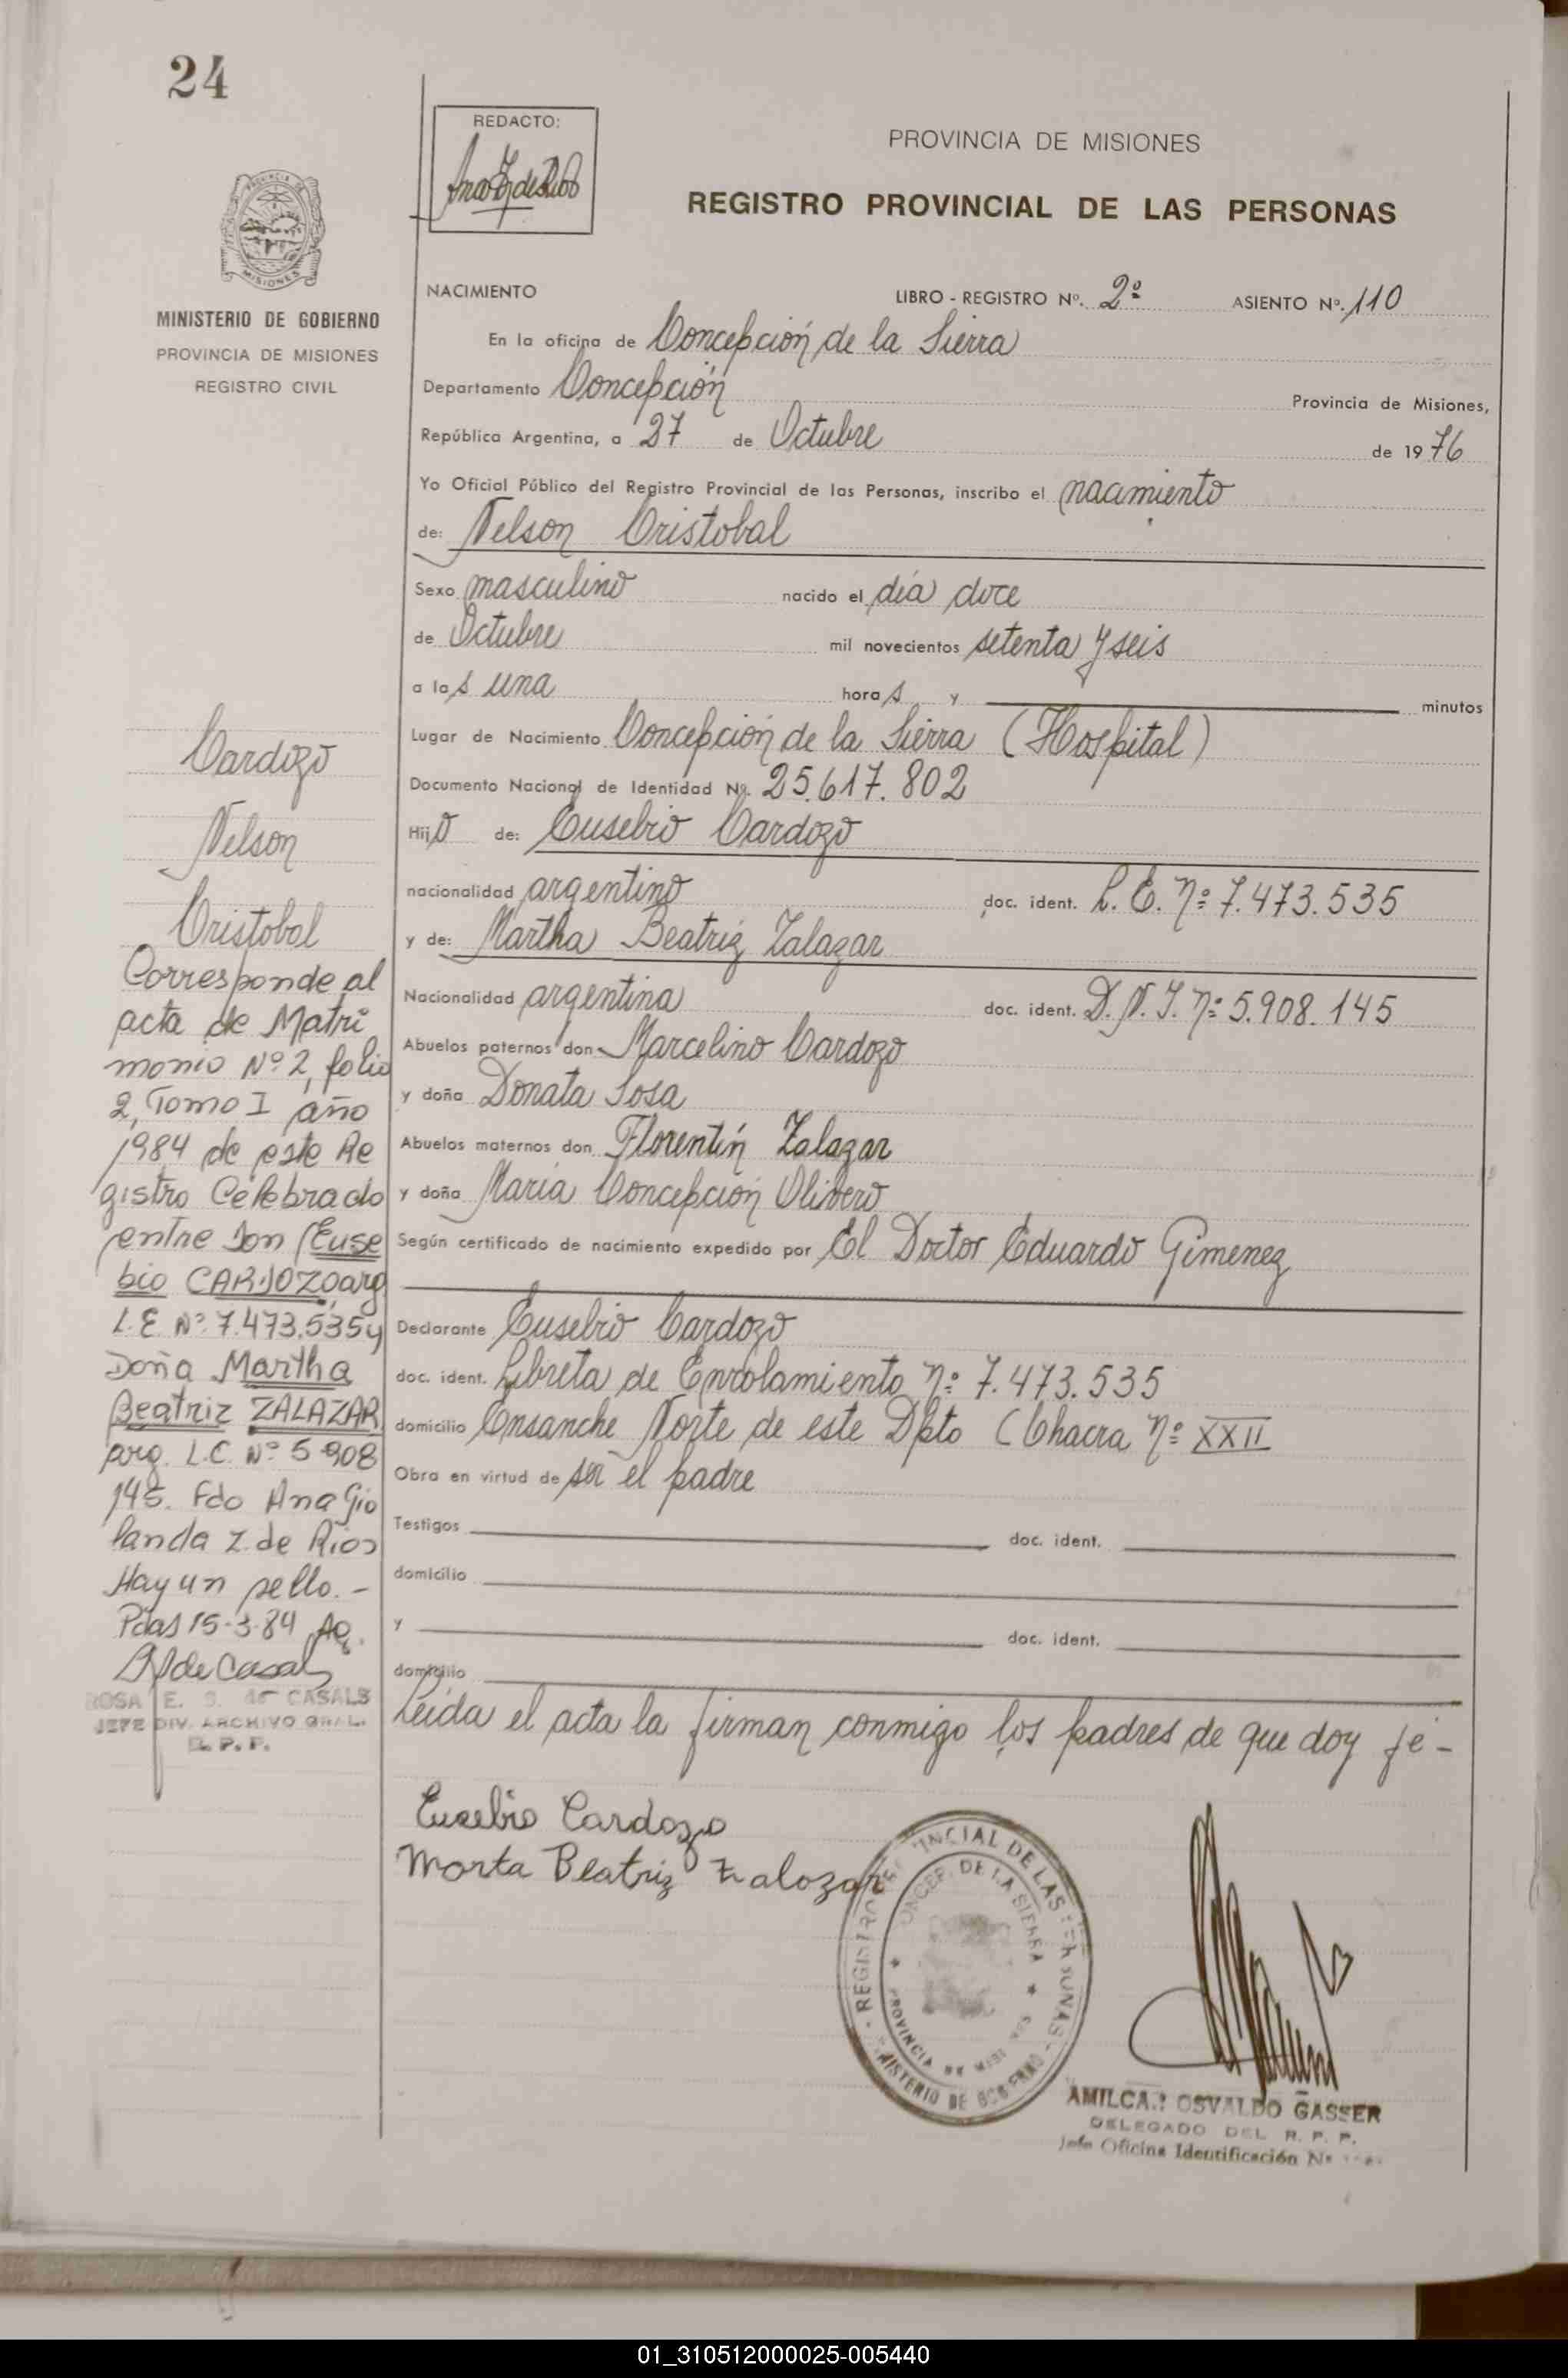 24
REDACTO:
PROVINCIA DE MISIONES
REGISTRO PROVINCIAL DE LAS PERSONAS
MISIONES
MINISTERIO DE GOBIERNO
PROVINCIA DE MISIONES
REGISTRO CIVIL
NACIMIENTO LIBRO - REGISTRO Nº. 2º ASIENTO Nº. 110
En la oficina de Concepción de la Sierra
Departamento Concepción Provincia de Misiones,
República Argentina, a 27 de Octubre de 1976
Yo Oficial Público del Registro Provincial de las Personas, inscribo el nacimiento
de: Nelson Cristobal
Sexo masculino nacido el día doce
de Octubre mil novecientos setenta y seis
a las una horas y minutos
Lugar de Nacimiento Concepción de la Sierra (Hospital)
Documento Nacional de Identidad Nº. 25.617.802
Hijo de: Eusebio Cardozo
nacionalidad argentino doc. ident. L. E. nº 7.473.535
y de: Martha Beatriz Zalazar
Nacionalidad argentina doc. ident. D. N. I. nº 5.908.145
Abuelos paternos don Marcelino Cardozo
y doña Donata Sosa
Abuelos maternos don Florentín Zalazar
y doña María Concepción Olivero
Según certificado de nacimiento expedido por El Doctor Eduardo Gimenez
Declarante Eusebio Cardozo
doc. ident. Libreta de Enrolamiento nº 7.473.535
domicilio Ensanche Norte de este Dpto (Chacra nº XXII
Obra en virtud de ser el padre
Testigos doc. ident.
domicilio
y doc. ident.
domicilio
Leída el acta la firman conmigo los padres de que doy fé -
Eusebio Cardozo
Marta Beatriz Zalazar
Cardozo
Nelson
Cristobal
Corresponde al
acta de Matri
monio Nº 2, folio
2, Tomo I año
1984 de este Re
gistro Celebrado
entre Don Euse
bio CARDOZO arg
L.E Nº 7.473.535 y
Doña Martha
Beatriz ZALAZAR
arg. L.C. Nº 5.908
145. Fdo Ana Gio
landa Z. de Rios
Hay un sello. -
Pdas 15-3-84
ROSA E. S. de CASALS
JEFE DIV. ARCHIVO GRAL.
R. P. P.
REGISTRO PROVINCIAL DE LAS PERSONAS - MINISTERIO DE GOBIERNO
CONCEP. DE LA SIERRA * PROVINCIA DE MISIONES *
AMILCAR OSVALDO GASSER
DELEGADO DEL R. P. P.
Jefe Oficina Identificación Nº
01_310512000025-005440